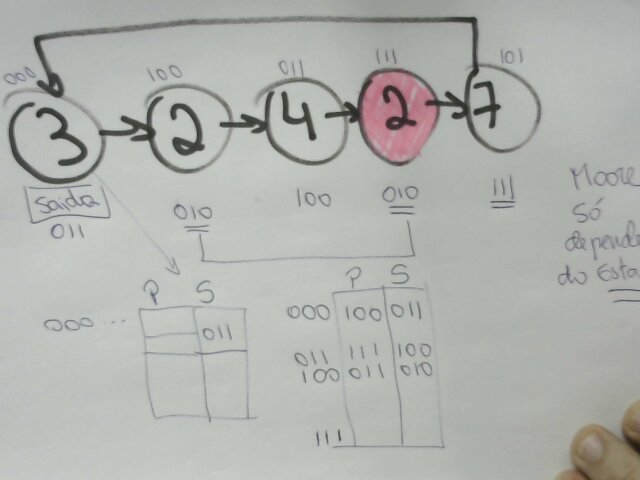 000 100 011 111 101
3 2 4 2 7
Saída
011
010 100 010 111
Moore
só
depende
do Esta
P S
000 ... 011
P S
000 100 011
011 111 100
100 011 010
111